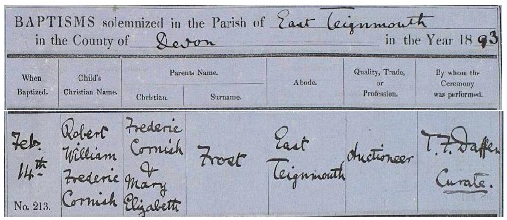 BAPTISMS solemnized in the Parish of East Teignmouth
in the County of Devon in the Year 1893
When Baptized.
Child's Christian Name.
Parents Name.
Christian.
Surname.
Abode.
Quality, Trade, or Profession.
By whom the Ceremony was performed.
Feb. 14th
No. 213.
Robert
William
Frederic
Cornish
Frederic
Cornish
&
Mary
Elizabeth
Frost
East
Teignmouth
Auctioneer
T. F. Daffen
Curate.